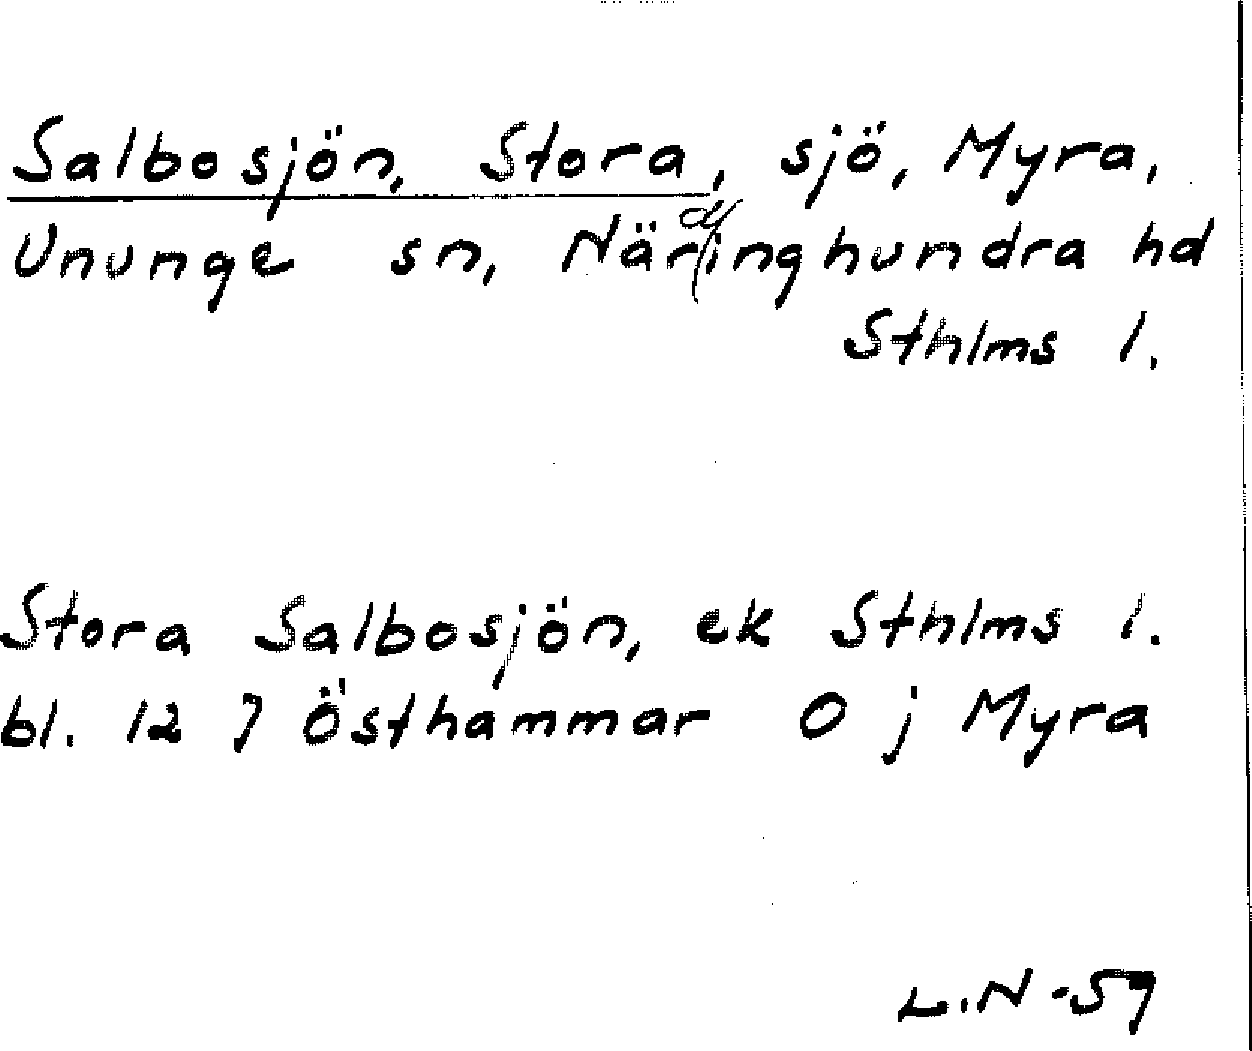 Salbosjön, Stora, sjö, Myra,
Ununge sn, Närdinghundra hd
Sthlms l.
Stora Salbosjön, ek Sthlms l.
bl. 12 7 Östhammar O j Myra
L.N -59